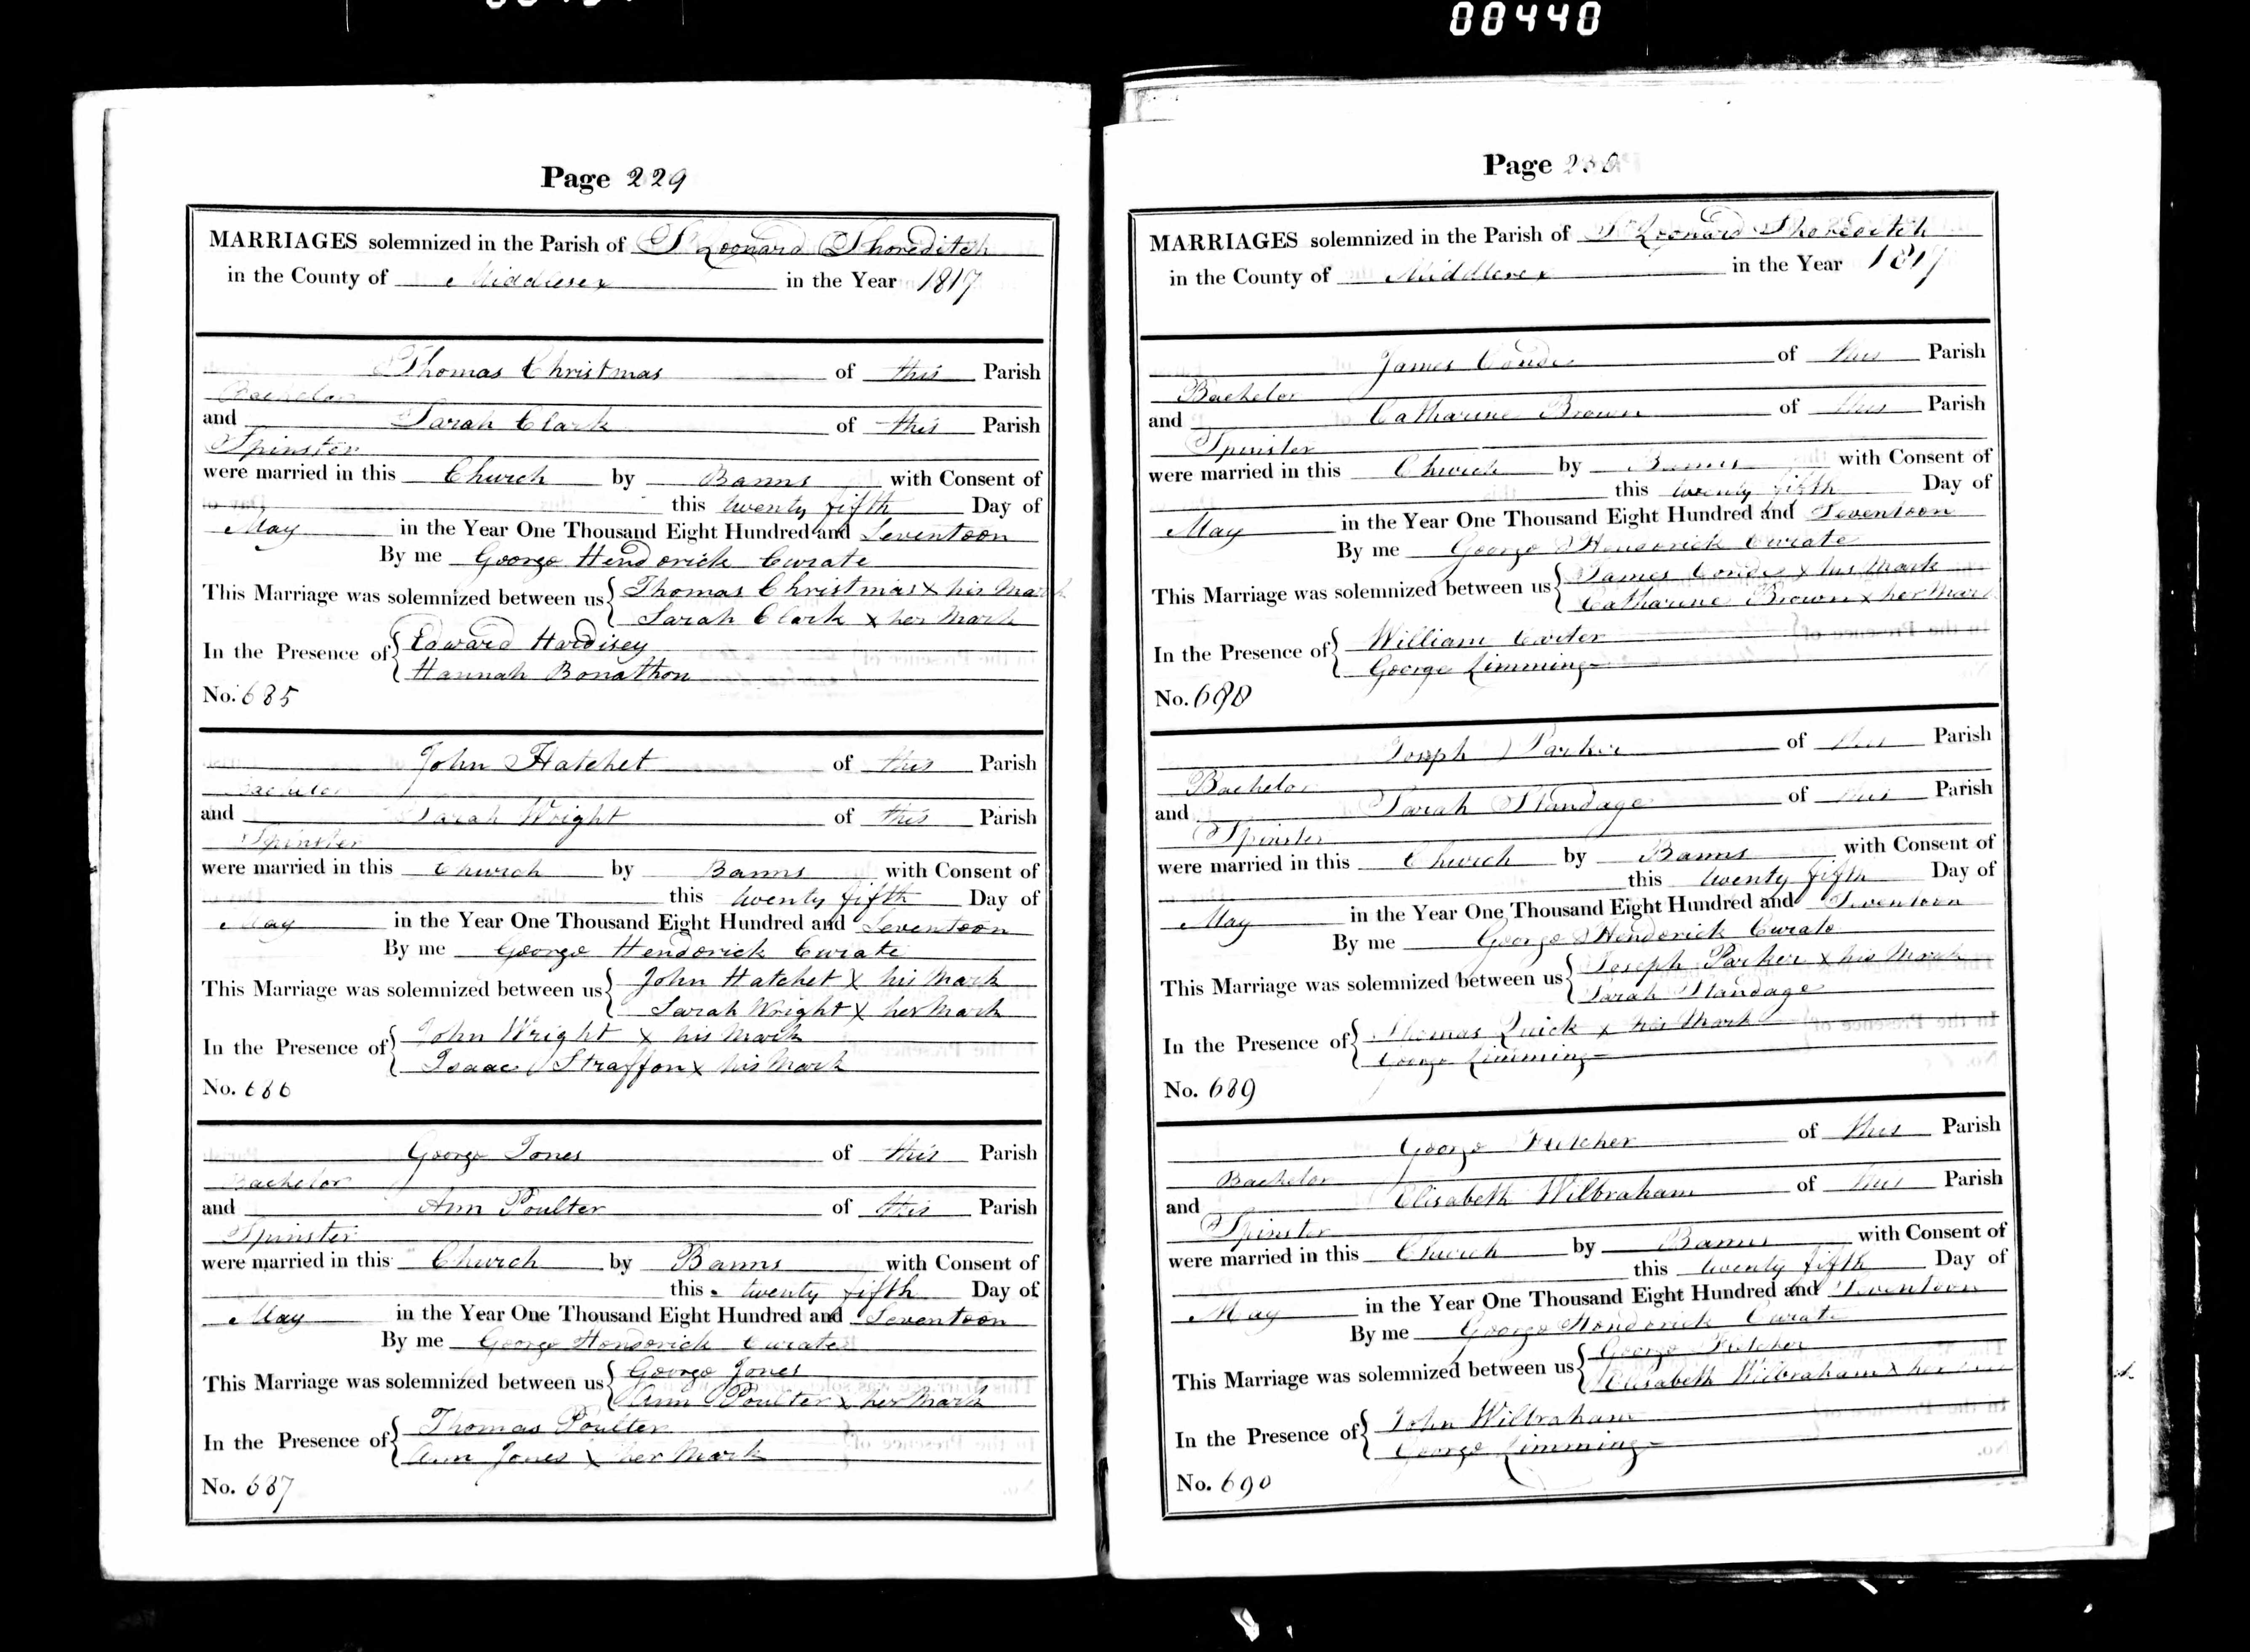 00440
Page 229
MARRIAGES solemnized in the Parish of St Leonard Shoreditch
in the County of Middlesex in the Year 1817
Thomas Christmas of this Parish
Bachelor
and Sarah Clark of this Parish
Spinster
were married in this Church by Banns with Consent of
this twenty fifth Day of
May in the Year One Thousand Eight Hundred and Seventeen
By me George Hendrick Curate
This Marriage was solemnized between us { Thomas Christmas x his Mark
Sarah Clark x her Mark
In the Presence of { Edward Hardisey
Hannah Bonathon
No. 685
John Hatchet of this Parish
Bachelor
and Sarah Wright of this Parish
Spinster
were married in this Church by Banns with Consent of
this twenty fifth Day of
May in the Year One Thousand Eight Hundred and Seventeen
By me George Hendrick Curate
This Marriage was solemnized between us { John Hatchet x his Mark
Sarah Wright x her Mark
In the Presence of { John Wright x his Mark
Isaac Straffon x his Mark
No. 686
George Jones of this Parish
Bachelor
and Ann Poulter of this Parish
Spinster
were married in this Church by Banns with Consent of
this twenty fifth Day of
May in the Year One Thousand Eight Hundred and Seventeen
By me George Hendrick Curate
This Marriage was solemnized between us { George Jones
Ann Poulter x her Mark
In the Presence of { Thomas Poulter
Ann Jones x her Mark
No. 687
Page 230
MARRIAGES solemnized in the Parish of St Leonard Shoreditch
in the County of Middlesex in the Year 1817
James Conde of this Parish
Bachelor
and Catharine Brown of this Parish
Spinster
were married in this Church by Banns with Consent of
this twenty fifth Day of
May in the Year One Thousand Eight Hundred and Seventeen
By me George Hendrick Curate
This Marriage was solemnized between us { James Conde x his Mark
Catharine Brown x her Mark
In the Presence of { William Carter
George Limming
No. 688
Joseph Parker of this Parish
Bachelor
and Sarah Standage of this Parish
Spinster
were married in this Church by Banns with Consent of
this twenty fifth Day of
May in the Year One Thousand Eight Hundred and Seventeen
By me George Hendrick Curate
This Marriage was solemnized between us { Joseph Parker x his Mark
Sarah Standage
In the Presence of { Thomas Quick x his Mark
George Limming
No. 689
George Futcher of this Parish
Bachelor
and Elisabeth Wilbraham of this Parish
Spinster
were married in this Church by Banns with Consent of
this twenty fifth Day of
May in the Year One Thousand Eight Hundred and Seventeen
By me George Hendrick Curate
This Marriage was solemnized between us { George Futcher
Elisabeth Wilbraham x her
In the Presence of { John Wilbraham
George Limming
No. 690